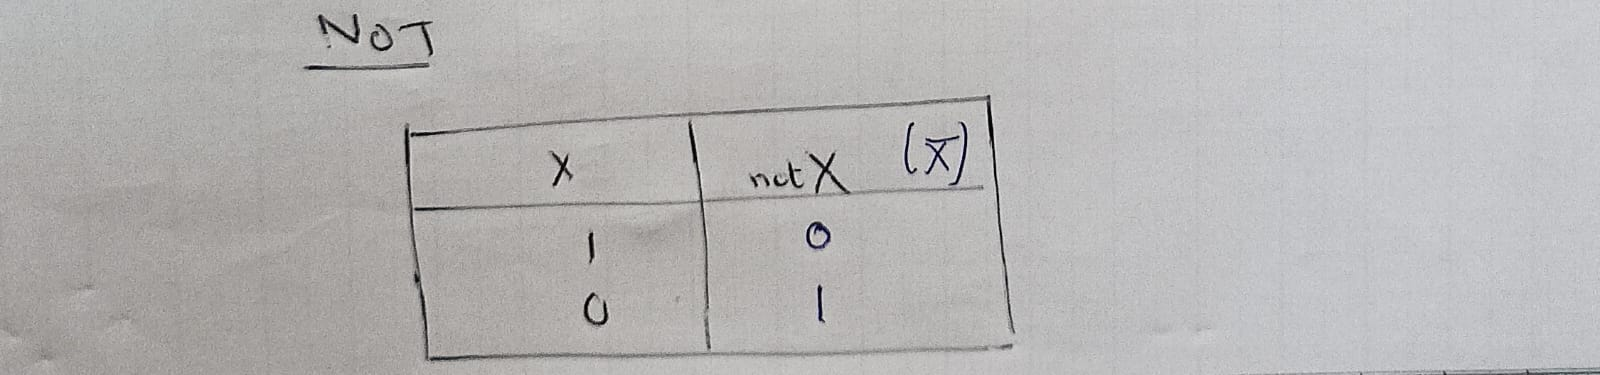 NOT
X not X (X̅)
1 0
0 1